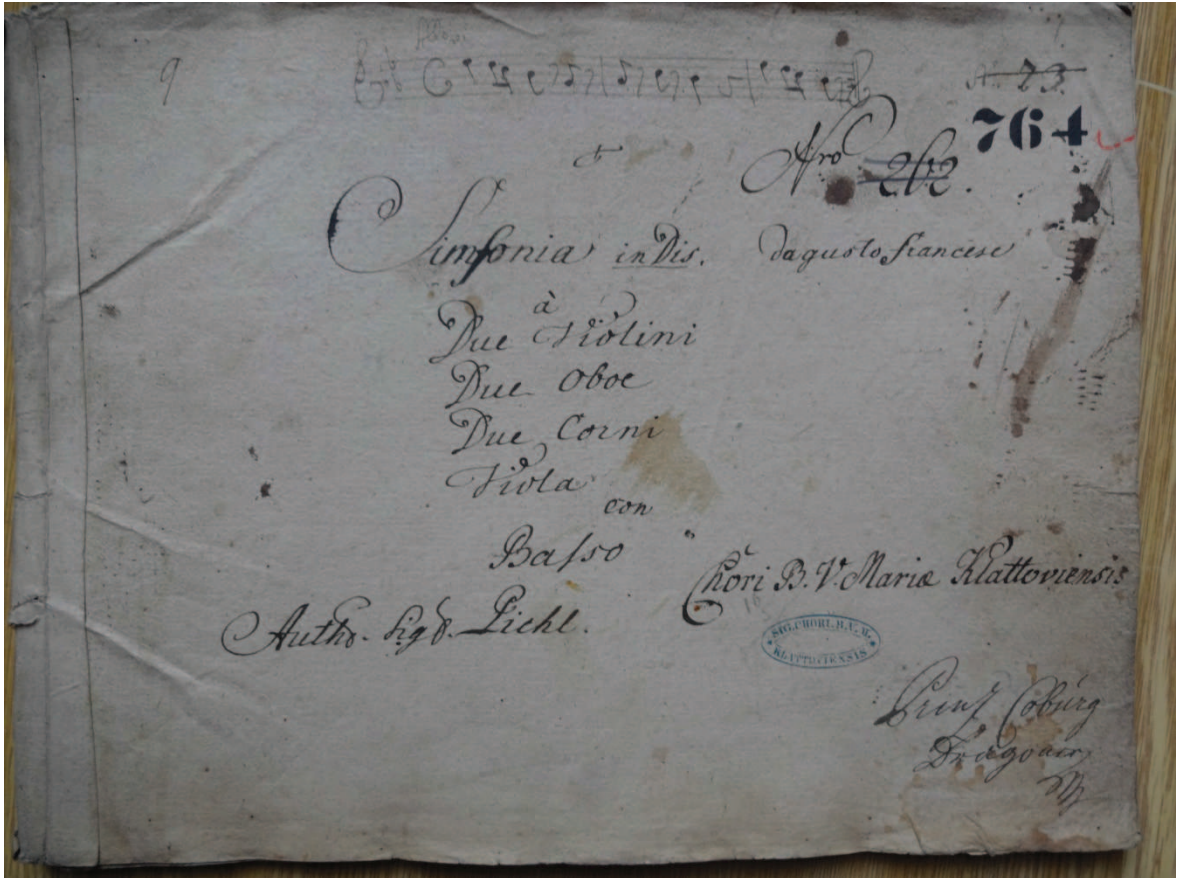 9
No. 23.
764
Nro 262.
Simfonia in Dis. Dagusto francese
à
Due Violini
Due Oboe
Due Corni
Viola
con
Basso
Chori B. V. Mariæ Klattoviensis
Autho. Sigō. Pichl.
SIG. CHORI. B. V. M.
KLATTOVIENSIS
Prinz Coburg
Dragoner